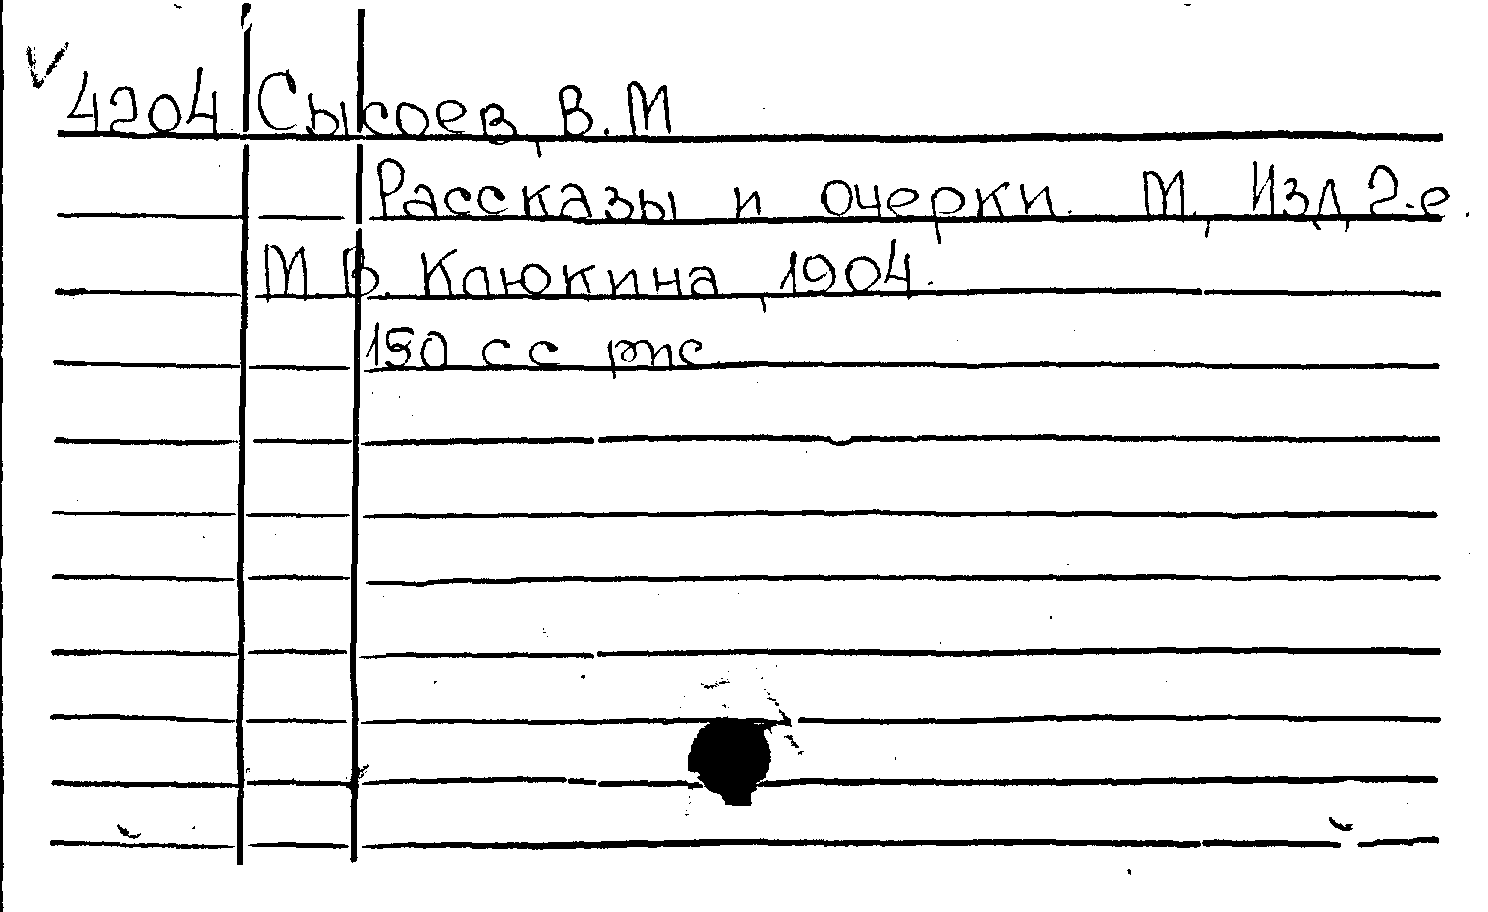 4204 Сысоев, В. М
Рассказы и очерки. М., Изд. 2-е.
М В. Клюкина, 1904.
150 с с рпс